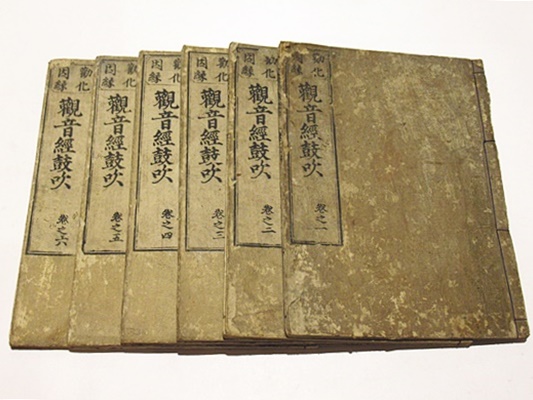 勧化
因縁
觀音經鼓吹
卷之一
勧化
因縁
觀音經鼓吹
卷之二
勧化
因縁
觀音經鼓吹
卷之三
勧化
因縁
觀音經鼓吹
卷之四
勧化
因縁
觀音經鼓吹
卷之五
勧化
因縁
觀音經鼓吹
卷之六